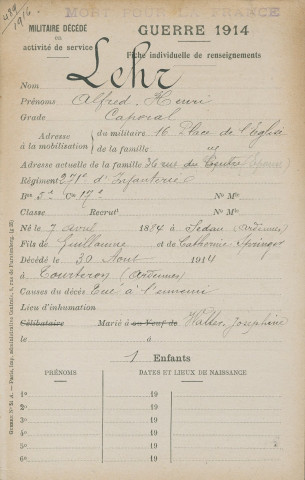 439
1916
MORT POUR LA FRANCE
MILITAIRE DÉCÉDÉ
en
activité de service
GUERRE 1914
Fiche individuelle de renseignements
Nom Lehr
Prénoms Alfred-Henri
Grade Caporal
Adresse à la mobilisation
du militaire 16 Place de l'Eglise
de la famille
Adresse actuelle de la famille 36 rue du Centre
Régiment 271e d'Infanterie
Bon 5e Cie 17e No Mle
Classe Recrut No Mle
Né le 7 Avril 1884 à Sedan (Ardennes)
Fils de Guillaume et de Catherine Springer
Décédé le 30 Août 1914
à Tourteron (Ardennes)
Causes du décès Tué à l'ennemi
Lieu d'inhumation
Célibataire Marié à ou Veuf de Walter Joséphine
le à
1 Enfants
PRÉNOMS DATES ET LIEUX DE NAISSANCE
1o 19
2o 19
3o 19
4o 19
5o 19
6o 19